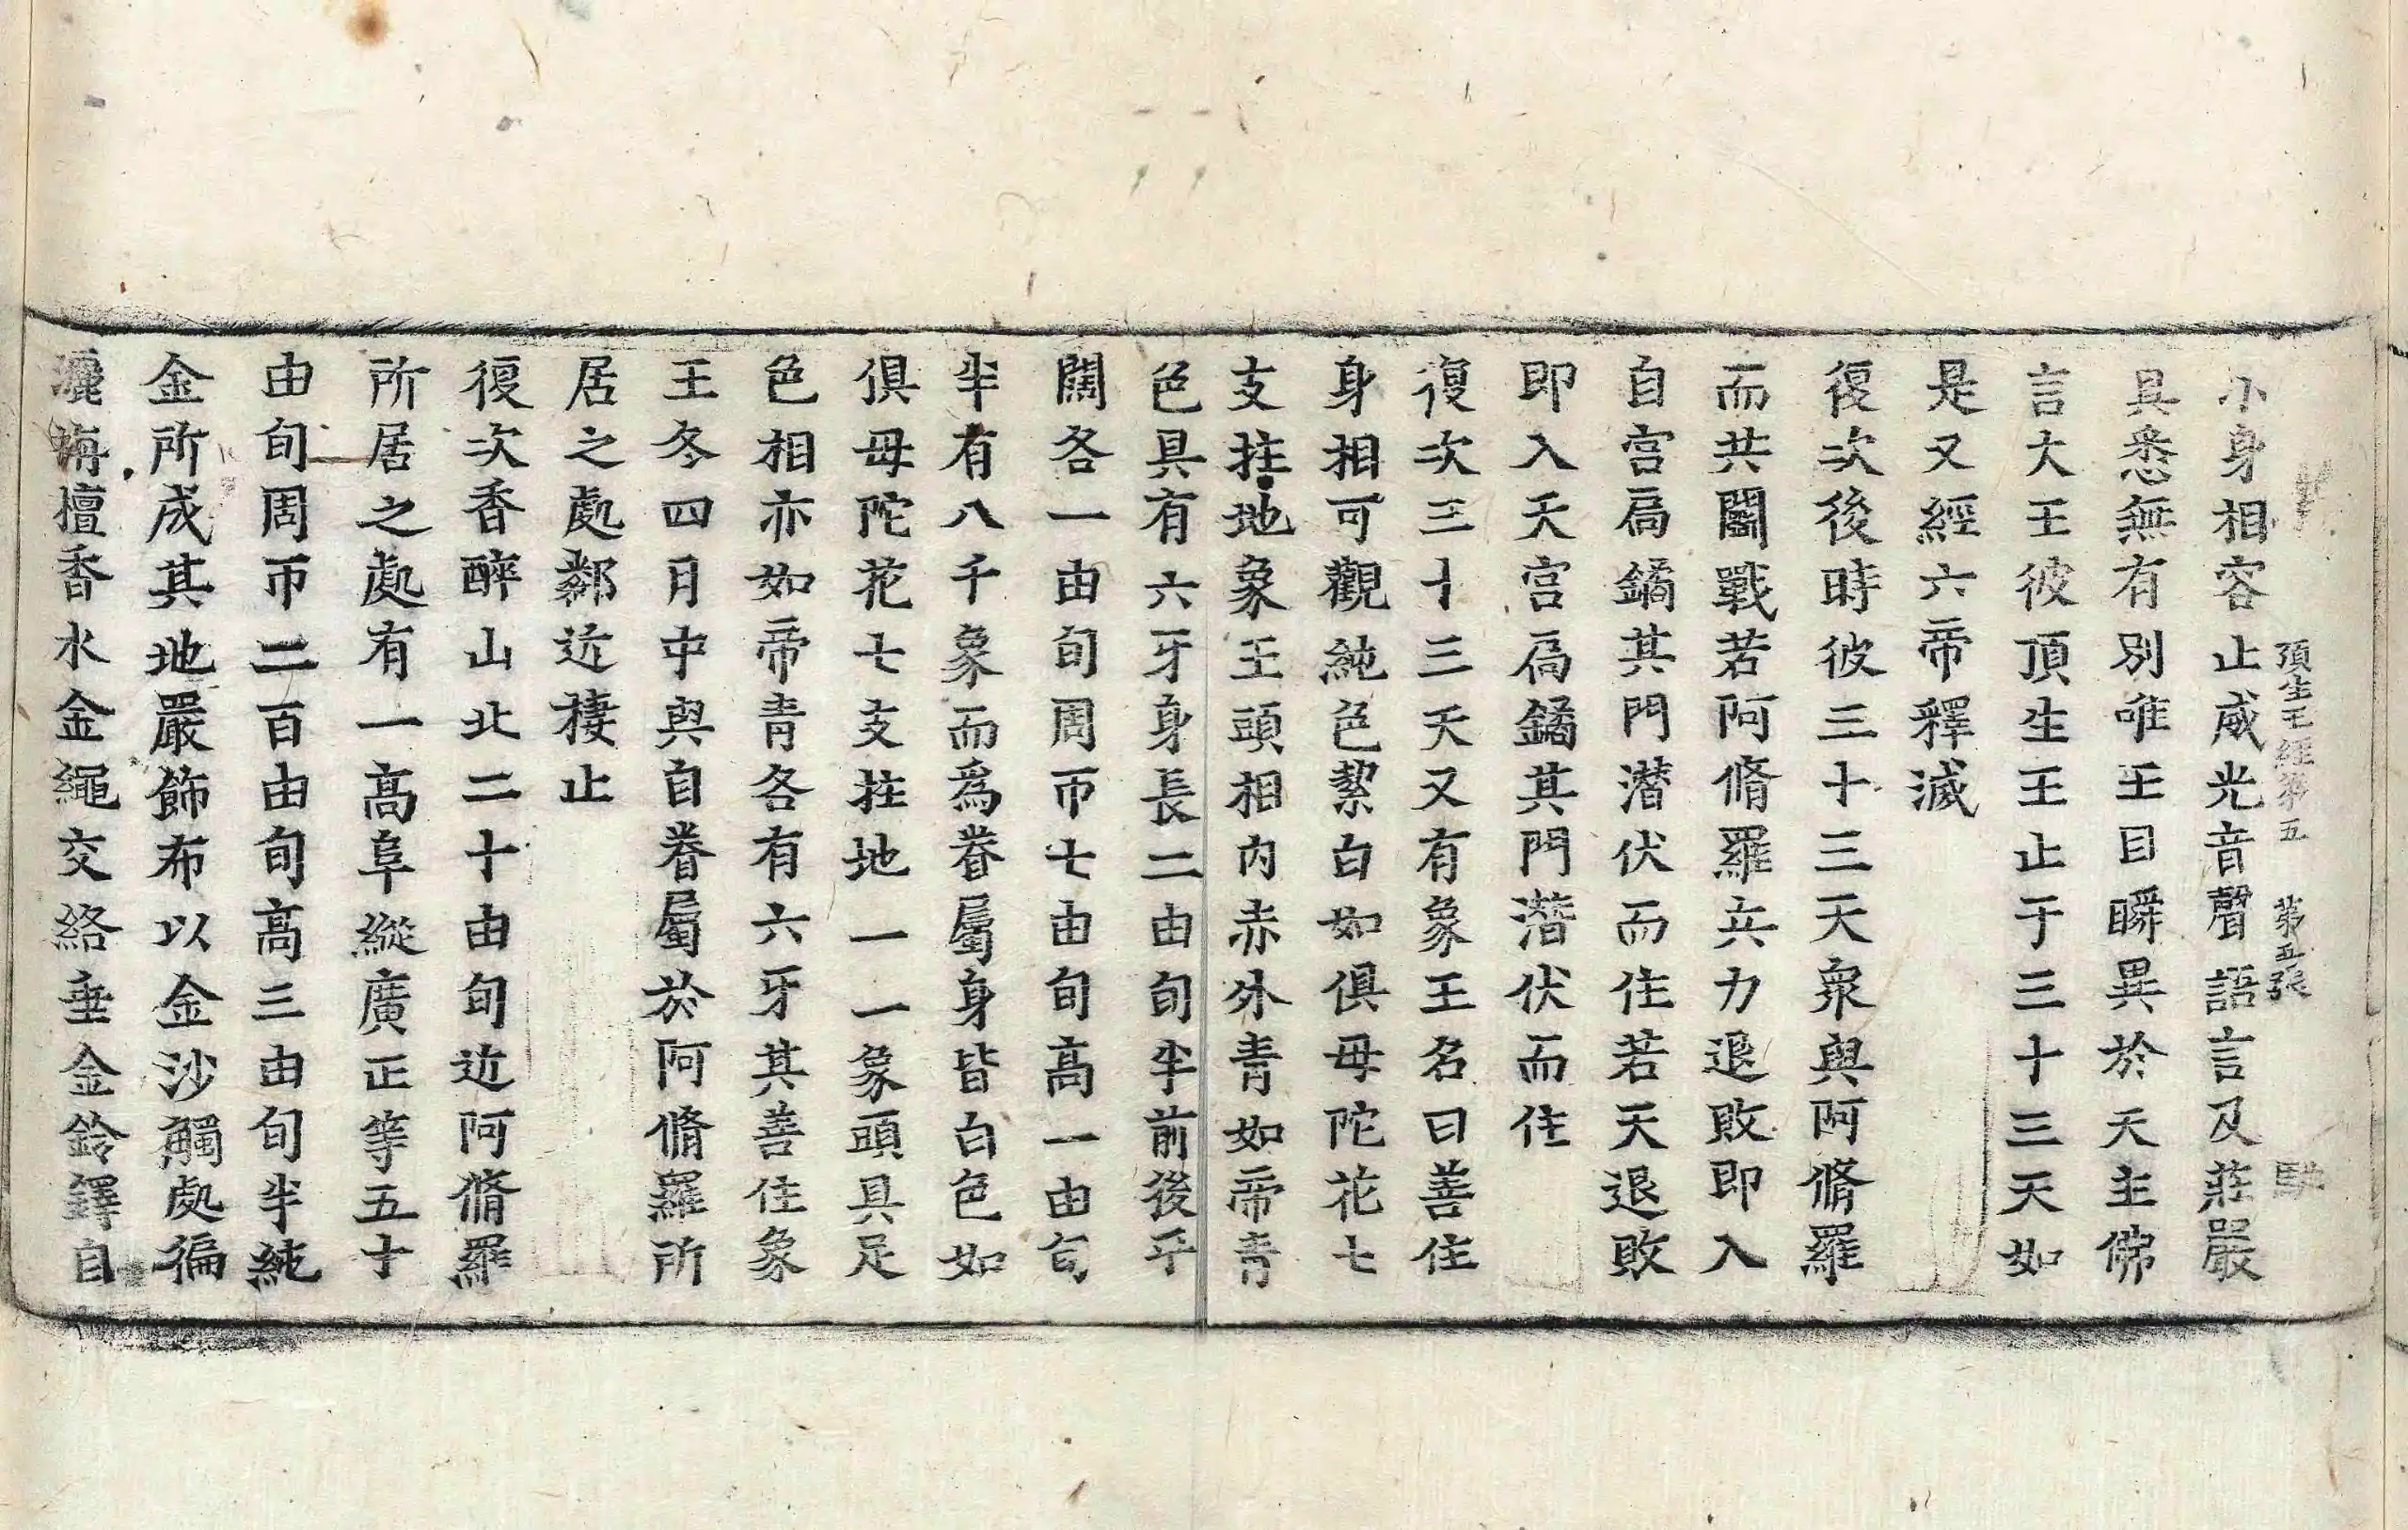 頂生王經第五　第五張　馳
小身相容止威光音聲語言及莊嚴
具悉無有別唯王目瞬異於天主佛
言大王彼頂生王止于三十三天如
是又經六帝釋滅
復次後時彼三十三天衆與阿脩羅
而共鬭戰若阿脩羅兵力退敗即入
自宫扃鐍其門潜伏而住若天退敗
即入天宫扃鐍其門潜伏而住
復次三十三天又有象王名曰善住
身相可觀純色潔白如俱毋陀花七
支拄地象王頭相内赤外青如帝青
色具有六牙身長二由旬半前後乎
闊各一由旬周帀七由旬高一由旬
半有八千象而爲眷屬身皆白色如
俱毋陀花七支拄地一一象頭具足
色相亦如帝青各有六牙其善住象
王冬四月中與自眷屬於阿脩羅所
居之處鄰近棲止
復次香醉山北二十由旬近阿脩羅
所居之處有一高阜縱廣正等五十
由旬周帀二百由旬高三由旬半純
金所成其地嚴飾布以金沙觸處徧
灑栴檀香水金繩交絡垂金鈴鐸自